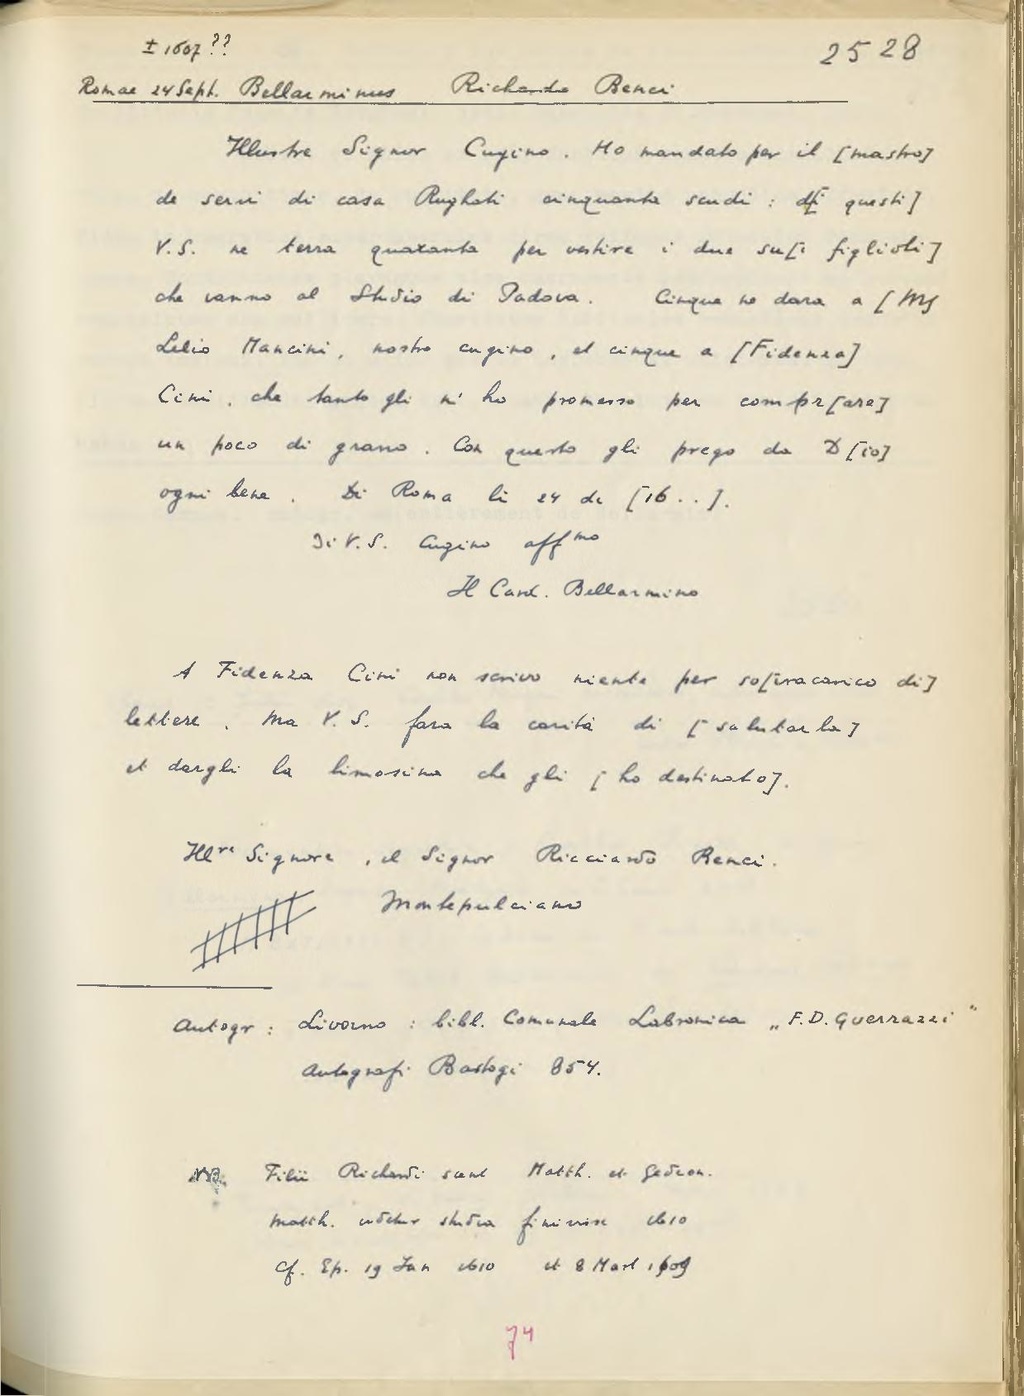 ± 1607 ??
2528
Romae 24 Sept. Bellarminus Richardo Benci
Illustre Signor Cugino. Ho mandato per il [mastro]
de servi di casa cinquanta scudi : di questi]
V.S. ne terra quaranta per vestire i due su[i figlioli]
che vanno al Studio di Padova. Cinque ne dara a [Mr
Lelio Mancini, nostro cugino, et cinque a [Fidenza]
Cini, che tanto gli n' ho promesso per compr[are]
un poco di grano. Con questo gli prego da D[io]
ogni bene. Di Roma li 24 de [16 . . ].
Di V.S. Cugino affmo
Il Card. Bellarmino
A Fidenza Cini non scrivo niente per so[vracarico di]
lettere. Ma V.S. fara la carità di [salutarla]
et dargli la limosina che gli [ho destinato].
Illre Signore, il Signor Ricciardo Benci.
Montepulciano
Autogr : Livorno : bibl. Comunale Labronica „F.D. Guerrazzi"
Autografi Bastogi 854.
NB. Filii Richardi sunt Matth. et Gedeon.
Matth. videtur studia finivisse 1610
Cf. Ep. 19 Jan 1610 et 8 Mart 1609
74